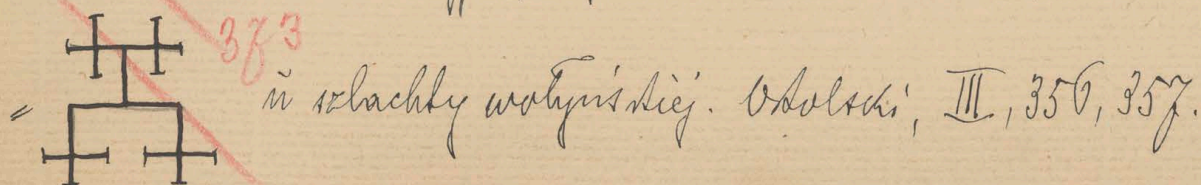 373
" u szlachty wołyńskiej. Okolski, III, 356, 357.